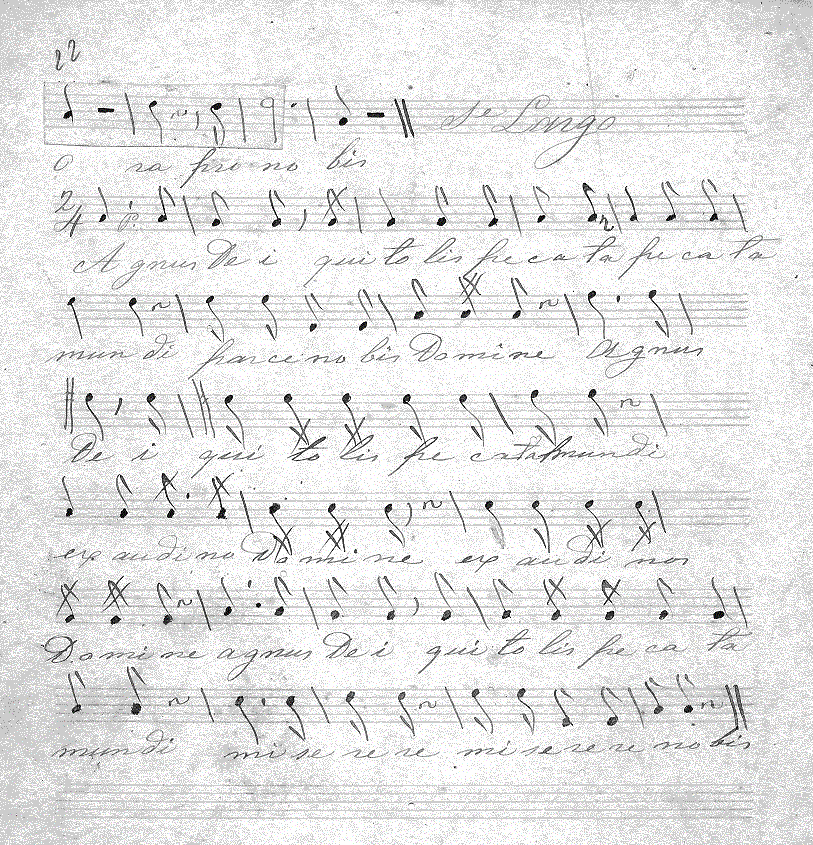 22
Largo
O ra pro no bis
2/4 P.
A gnus De i qui to lis pe ca ta pe ca ta
mun di parce no bis Domine Agnus
De i qui to lis pe catamundi
ex audi no Domine ex audi nos
Domine agnus De i qui to lis pe ca ta
mundi mi se re re mi se re re no bis